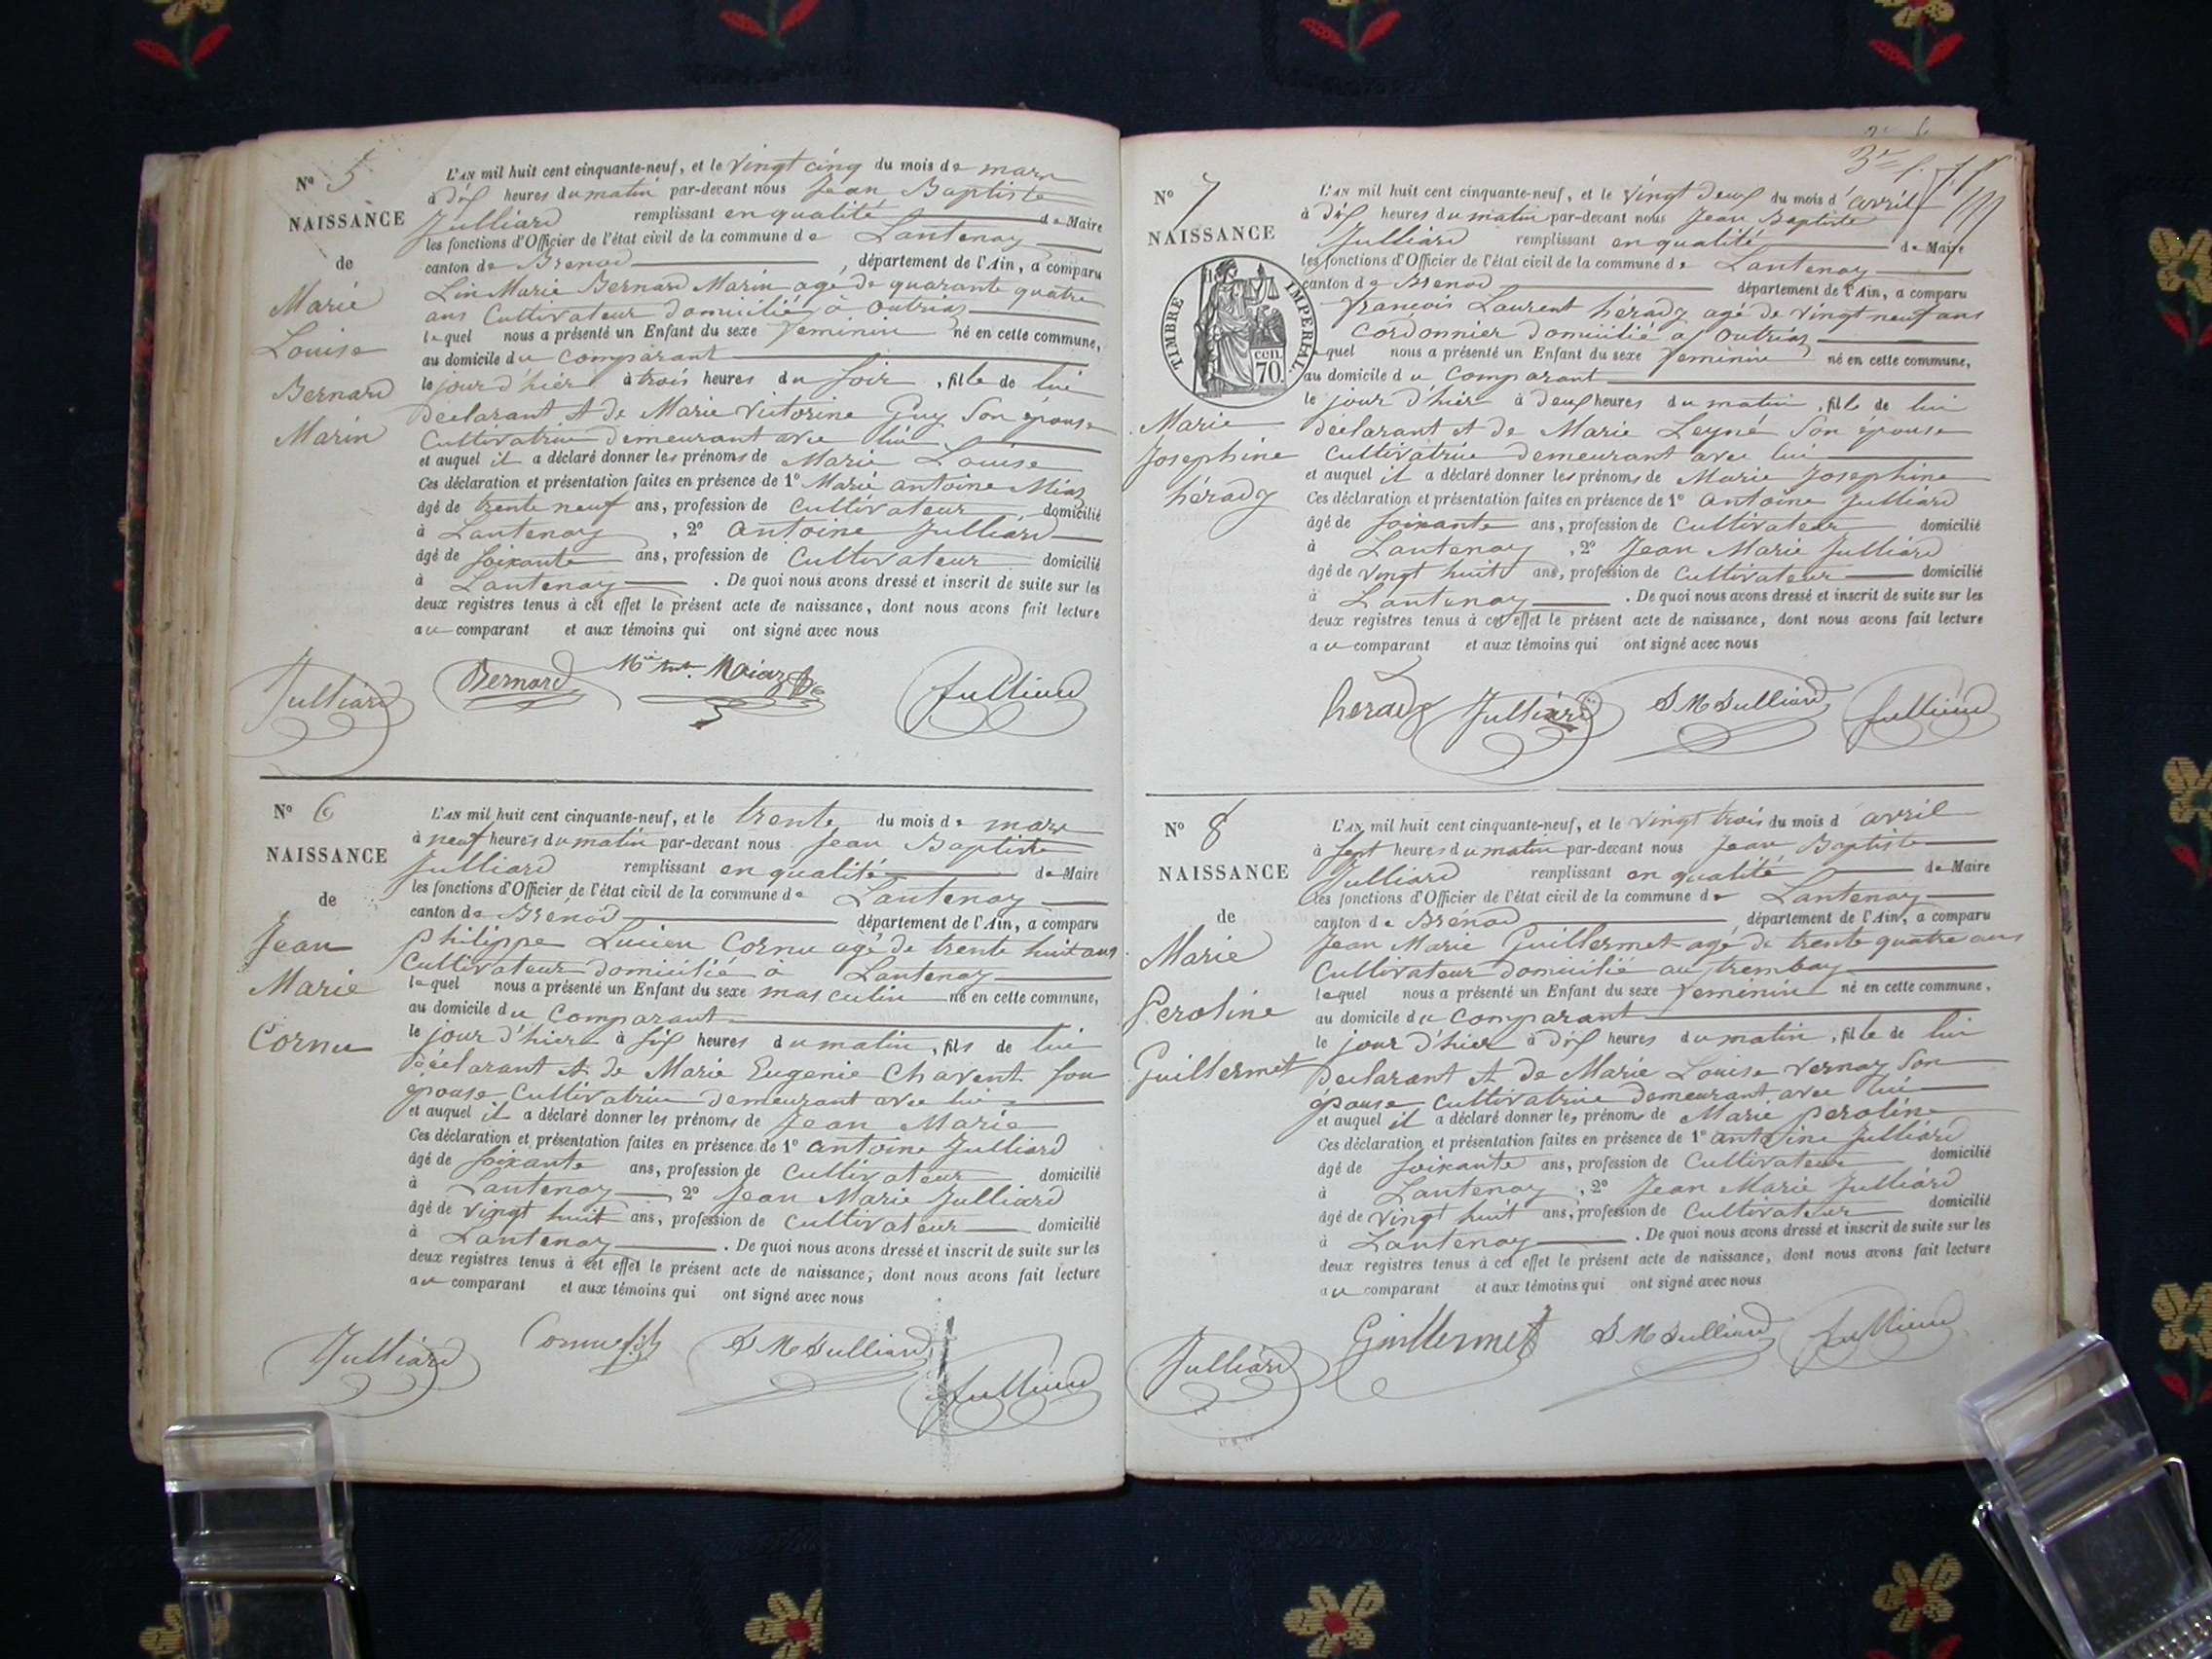 Nº 5
NAISSANCE
de
Marie
Louise
Bernard
Marin
L'AN mil huit cent cinquante-neuf, et le vingt cinq du mois de mars
à dix heures du matin par-devant nous Jean Baptiste
Julliard remplissant en qualité de Maire
les fonctions d'Officier de l'état civil de la commune de Lantenay
canton de Brenod , département de l'Ain, a comparu
Lin Marie Bernard Marin agé de quarante quatre
ans Cultivateur domicilié à Outriaz
lequel nous a présenté un Enfant du sexe feminin né en cette commune,
au domicile du Comparant
le jour d'hier à trois heures du soir , fille de lui
declarant et de Marie Victorine Guy Son épouse
Cultivatrice demeurant avec lui
et auquel il a déclaré donner les prénoms de Marie Louise
Ces déclaration et présentation faites en présence de 1º Marie antoine Miaz
âgé de trente neuf ans, profession de Cultivateur domicilié
à Lantenay , 2º Antoine Julliard
âgé de soixante ans, profession de Cultivateur domicilié
à Lantenay . De quoi nous avons dressé et inscrit de suite sur les
deux registres tenus à cet effet le présent acte de naissance, dont nous avons fait lecture
au comparant et aux témoins qui ont signé avec nous
Julliard Bernard Julliard
Nº 6
NAISSANCE
de
Jean
Marie
Cornu
L'AN mil huit cent cinquante-neuf, et le trente du mois de mars
à neuf heures du matin par-devant nous Jean Baptiste
Julliard remplissant en qualité de Maire
les fonctions d'Officier de l'état civil de la commune de Lantenay
canton de Brénod département de l'Ain, a comparu
Philippe Lucien Cornu agé de trente huit ans
Cultivateur domicilié à Lantenay
lequel nous a présenté un Enfant du sexe masculin né en cette commune,
au domicile du Comparant
le jour d'hier à six heures du matin , fils de lui
déclarant et de Marie Eugenie Chavent son
épouse Cultivatrice demeurant avec lui
et auquel il a déclaré donner les prénoms de Jean Marie
Ces déclaration et présentation faites en présence de 1º antoine Julliard
âgé de soixante ans, profession de Cultivateur domicilié
à Lantenay 2º Jean Marie Julliard
âgé de vingt huit ans, profession de Cultivateur domicilié
à Lantenay . De quoi nous avons dressé et inscrit de suite sur les
deux registres tenus à cet effet le présent acte de naissance, dont nous avons fait lecture
au comparant et aux témoins qui ont signé avec nous
Julliard Cornu fils J M Julliard Julliard
Nº 7
NAISSANCE
TIMBRE IMPERIAL
cen.
70.
Marie
Josephine
héradz
L'AN mil huit cent cinquante-neuf, et le vingt deux du mois d'avril
à dix heures du matin par-devant nous Jean Baptiste
Julliard remplissant en qualité de Maire
les fonctions d'Officier de l'état civil de la commune de Lantenay
canton de Brenod département de l'Ain, a comparu
francois Laurent héradz agé de vingt neuf ans
Cordonnier domicilié à Outriaz
lequel nous a présenté un Enfant du sexe feminin né en cette commune,
au domicile du Comparant
le jour d'hier à deux heures du matin , fille de lui
declarant et de Marie Leyné Son épouse
Cultivatrice demeurant avec lui
et auquel il a déclaré donner les prénoms de Marie Josephine
Ces déclaration et présentation faites en présence de 1º Antoine Julliard
âgé de soixante ans, profession de Cultivateur domicilié
à Lantenay , 2º Jean Marie Julliard
âgé de vingt huit ans, profession de Cultivateur domicilié
à Lantenay . De quoi nous avons dressé et inscrit de suite sur les
deux registres tenus à cet effet le présent acte de naissance, dont nous avons fait lecture
au comparant et aux témoins qui ont signé avec nous
heradz Julliard J M Julliard Julliard
Nº 8
NAISSANCE
de
Marie
Peroline
Guillermet
L'AN mil huit cent cinquante-neuf, et le vingt trois du mois d'avril
à sept heures du matin par-devant nous Jean Baptiste
Julliard remplissant en qualité de Maire
les fonctions d'Officier de l'état civil de la commune de Lantenay
canton de Brénod département de l'Ain, a comparu
Jean Marie Guillermet agé de trente quatre ans
Cultivateur domicilié au trembay
lequel nous a présenté un Enfant du sexe feminin né en cette commune,
au domicile du Comparant
le jour d'hier à dix heures du matin , fille de lui
declarant et de Marie Louise Vernay Son
épouse Cultivatrice demeurant avec lui
et auquel il a déclaré donner les prénoms de Marie peroline
Ces déclaration et présentation faites en présence de 1º antoine Julliard
âgé de soixante ans, profession de Cultivateur domicilié
à Lantenay , 2º Jean Marie Julliard
âgé de vingt huit ans, profession de Cultivateur domicilié
à Lantenay . De quoi nous avons dressé et inscrit de suite sur les
deux registres tenus à cet effet le présent acte de naissance, dont nous avons fait lecture
au comparant et aux témoins qui ont signé avec nous
Julliard Guillermet J M Julliard Julliard